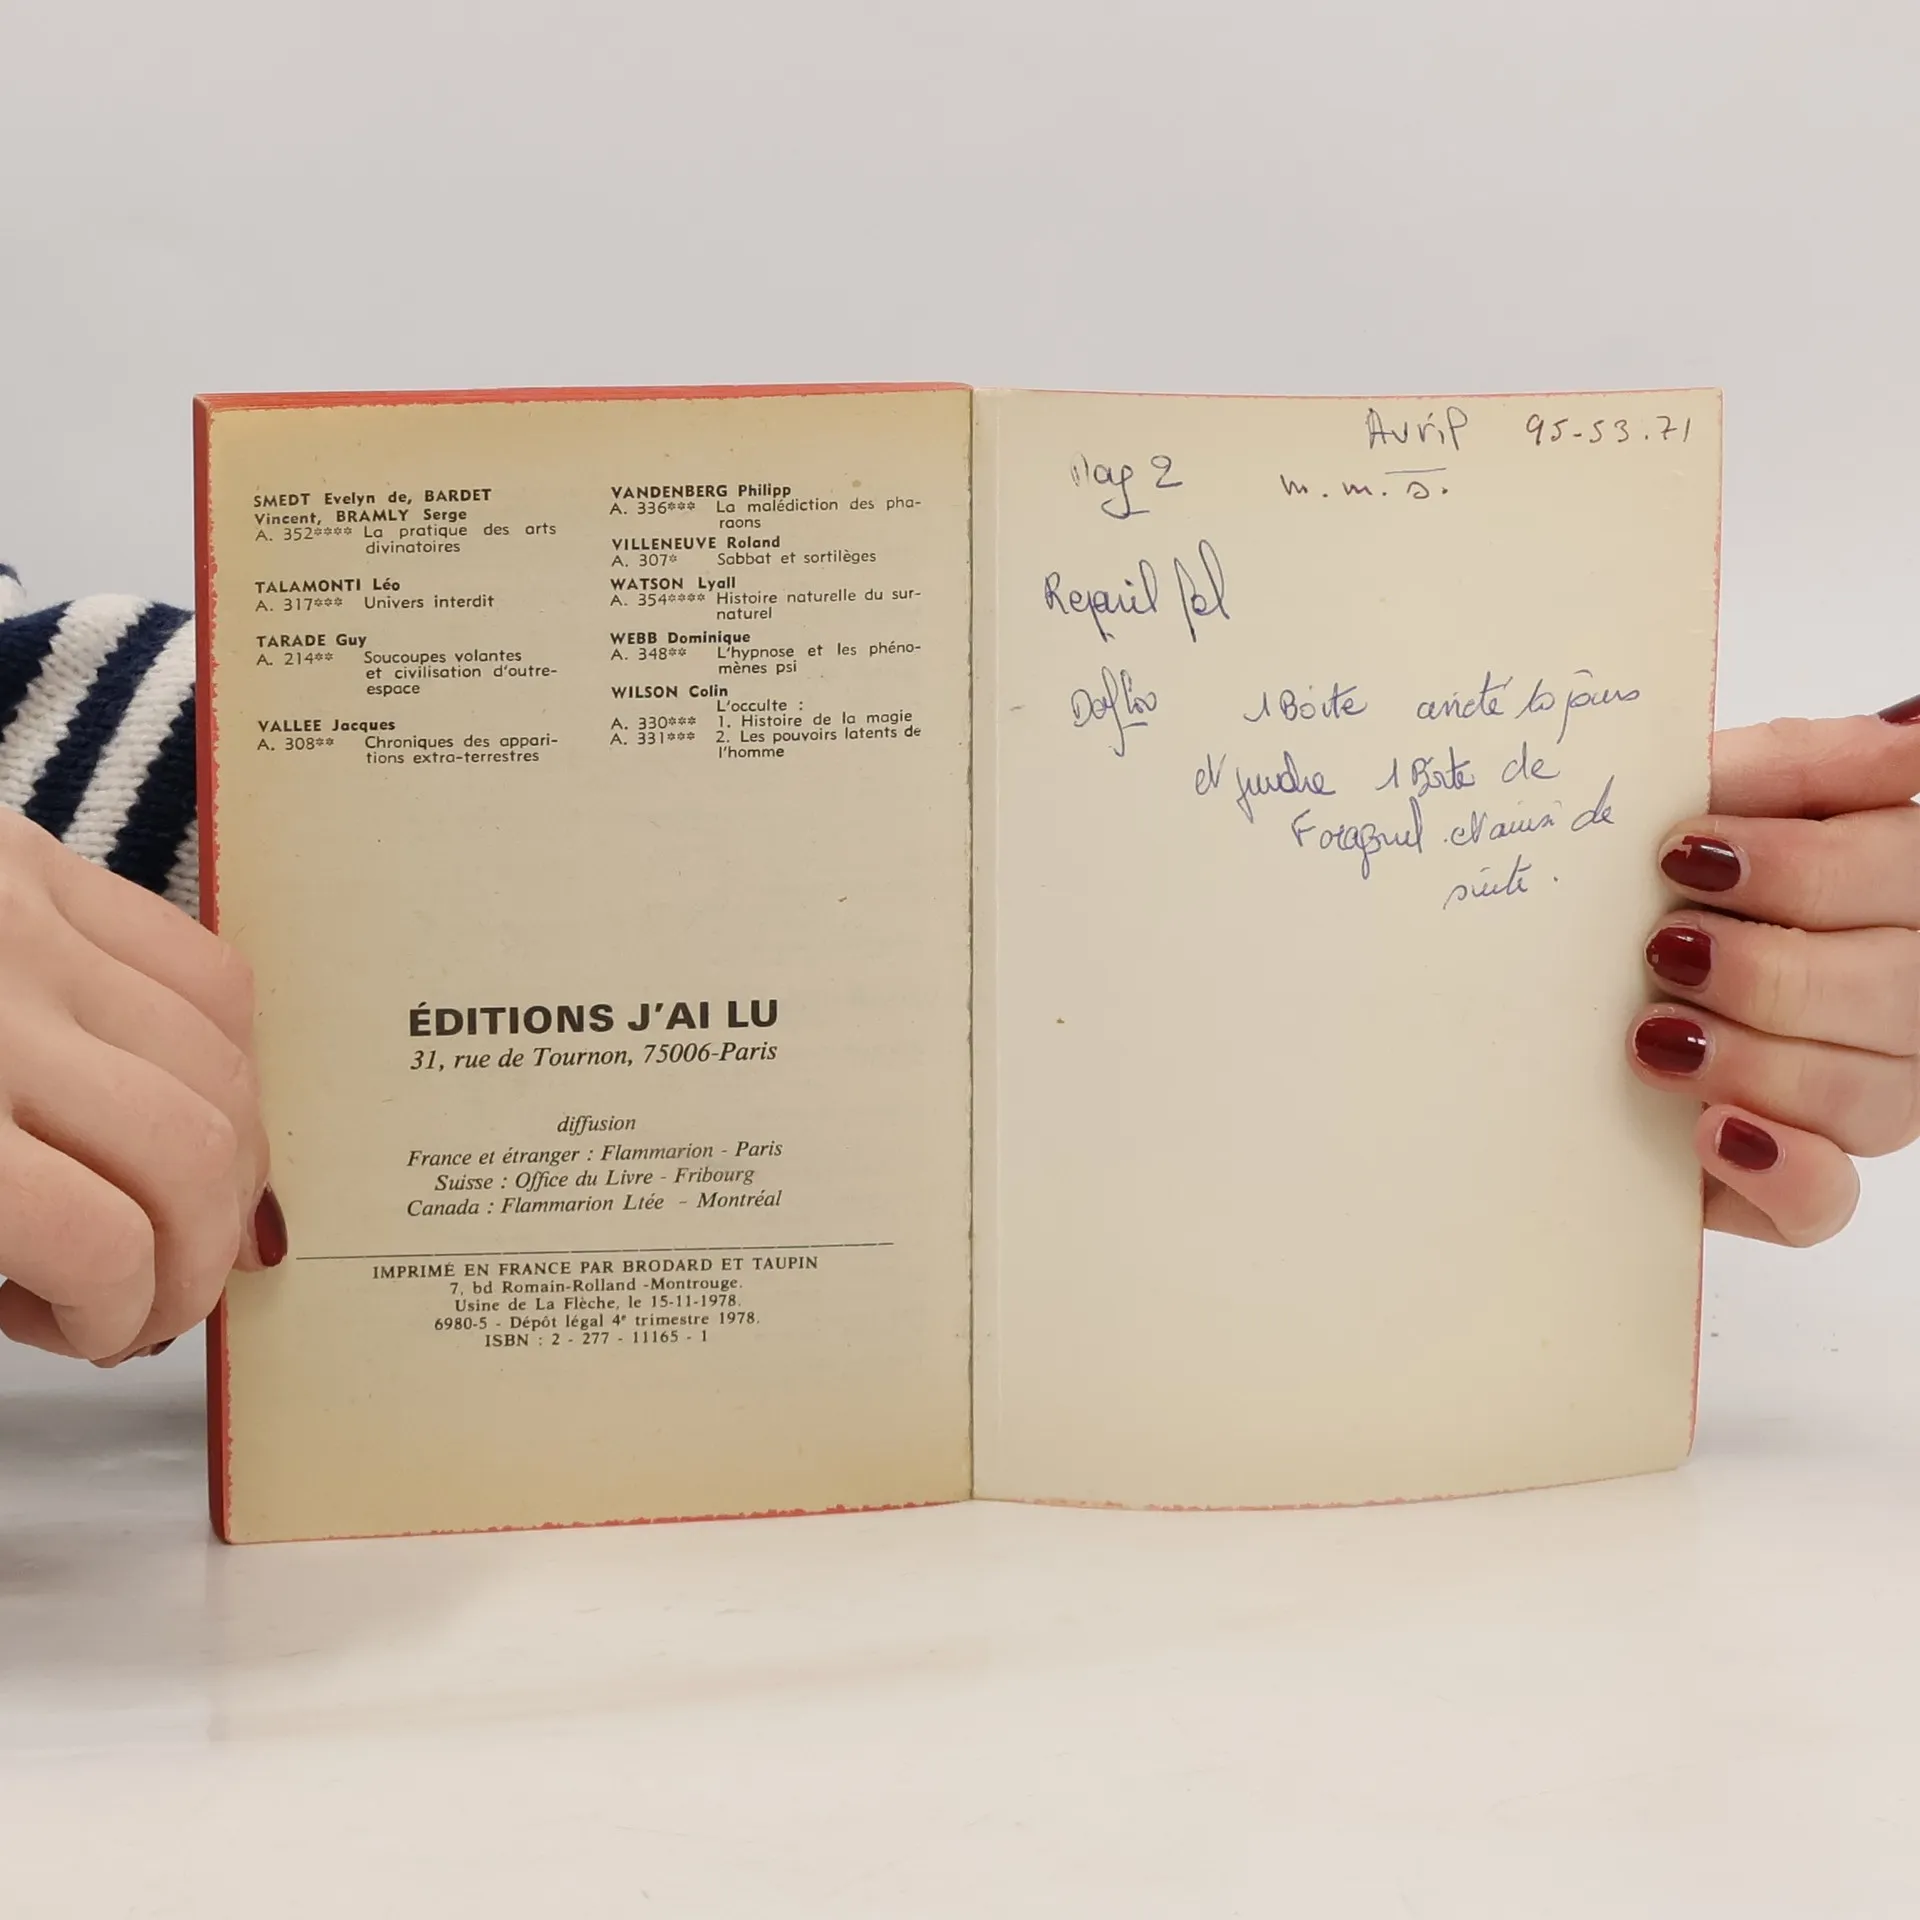 SMEDT Evelyn de, BARDET
Vincent, BRAMLY Serge
A. 352**** La pratique des arts
divinatoires
TALAMONTI Léo
A. 317*** Univers interdit
TARADE Guy
A. 214** Soucoupes volantes
et civilisation d'outre-
espace
VALLEE Jacques
A. 308** Chroniques des appari-
tions extra-terrestres
VANDENBERG Philipp
A. 336*** La malédiction des pha-
raons
VILLENEUVE Roland
A. 307* Sabbat et sortilèges
WATSON Lyall
A. 354**** Histoire naturelle du sur-
naturel
WEBB Dominique
A. 348** L'hypnose et les phéno-
mènes psi
WILSON Colin
L'occulte :
A. 330*** 1. Histoire de la magie
A. 331*** 2. Les pouvoirs latents de
l'homme
ÉDITIONS J'AI LU
31, rue de Tournon, 75006-Paris
diffusion
France et étranger : Flammarion - Paris
Suisse : Office du Livre - Fribourg
Canada : Flammarion Ltée - Montréal
IMPRIMÉ EN FRANCE PAR BRODARD ET TAUPIN
7, bd Romain-Rolland -Montrouge.
Usine de La Flèche, le 15-11-1978.
6980-5 - Dépôt légal 4e trimestre 1978.
ISBN : 2 - 277 - 11165 - 1
Avril 95-53.71
Mag 2 m. m. s.
Daflon 1 Boite jours
et 1 Boite de
et ainsi de
suite.